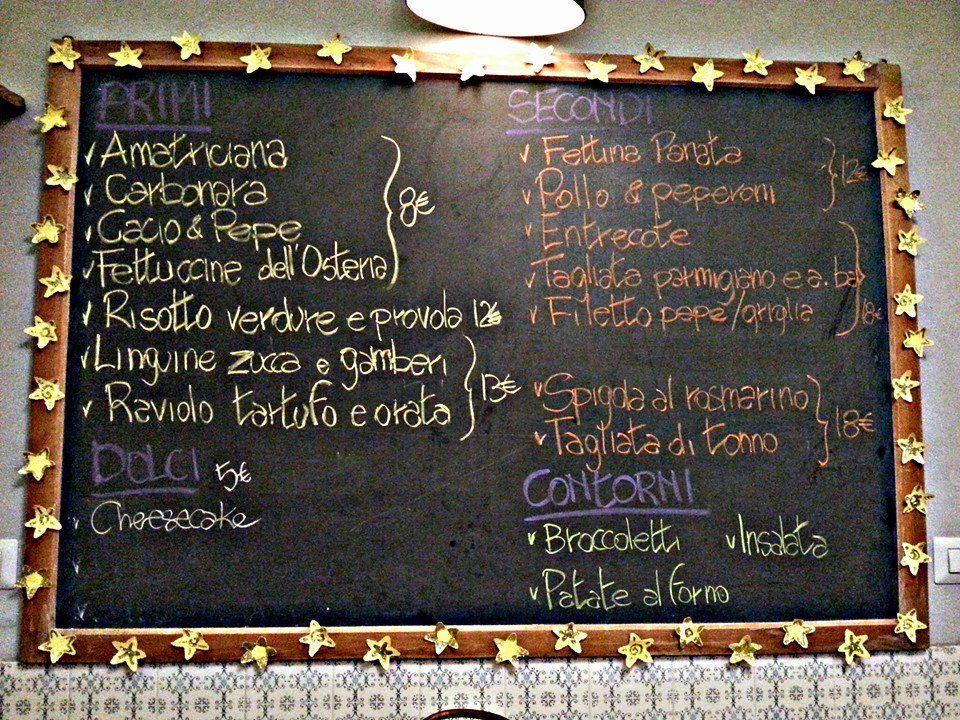 PRIMI
Amatriciana
Carbonara
Cacio & Pepe
Fettuccine dell'Osteria
8€
Risotto verdure e provola 12€
Linguine zucca e gamberi
Raviolo tartufo e orata
13€
DOLCI 5€
Cheesecake
SECONDI
Fettina Panata
Pollo & peperoni
12€
Entrecote
Tagliata parmigiano e a. ba
Filetto pepe/griglia
18€
Spigola al rosmarino
Tagliata di tonno
18€
CONTORNI
Broccoletti Insalata
Patate al forno